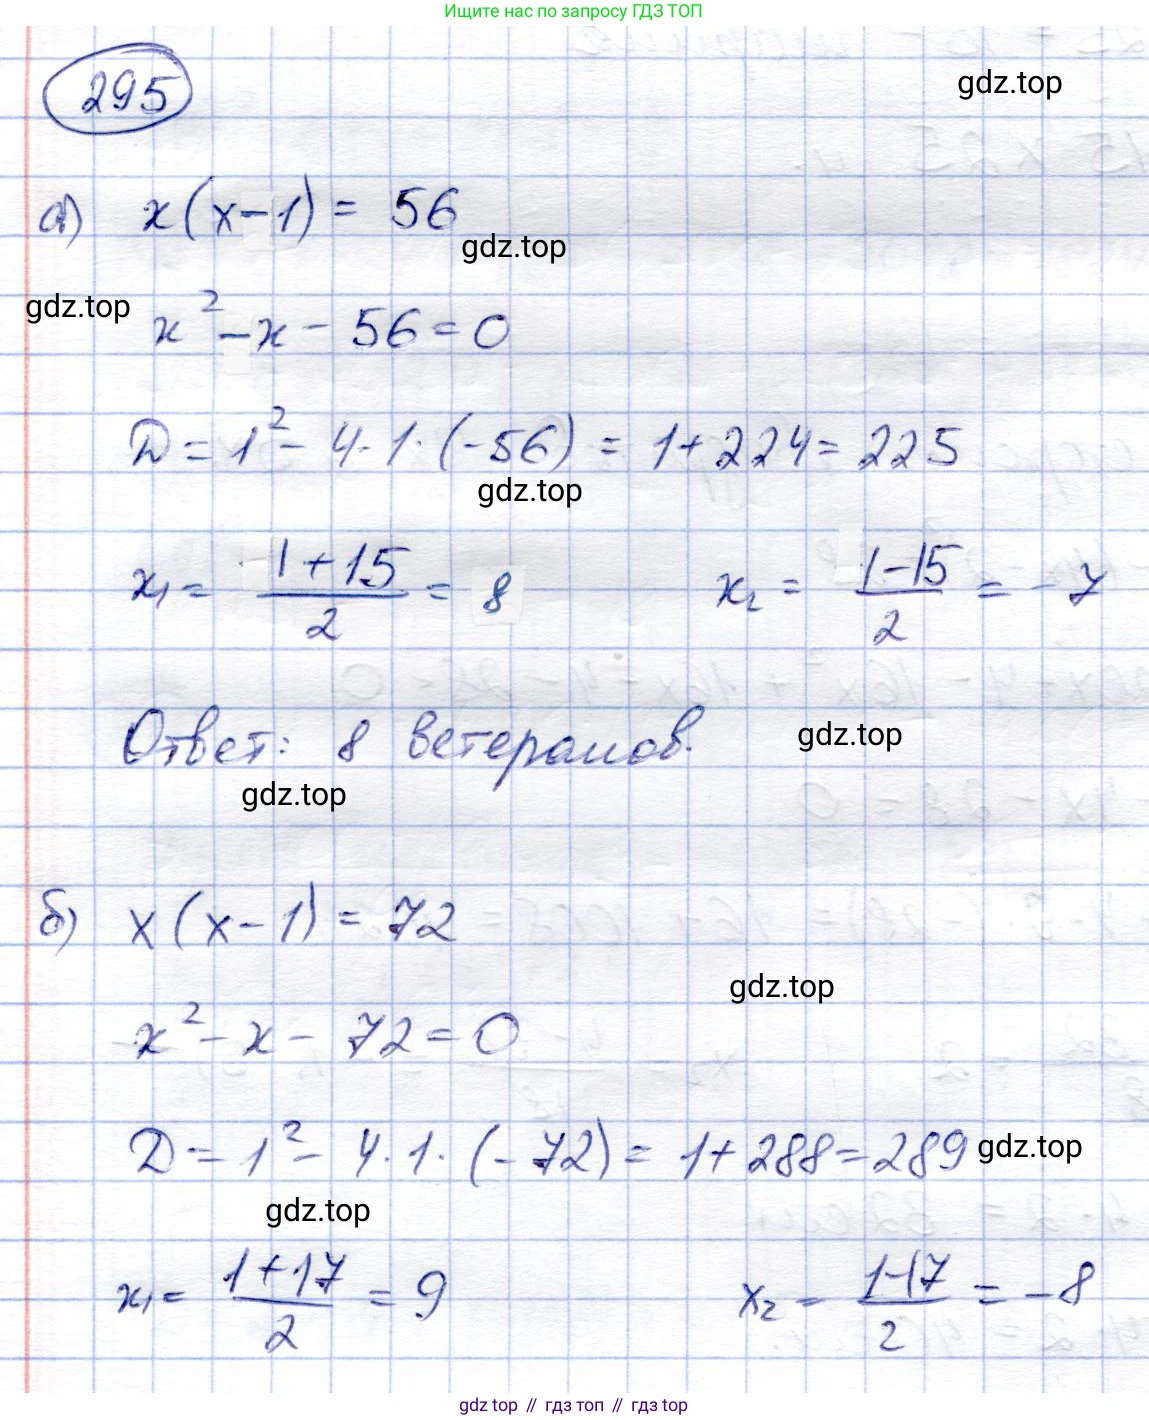 Ищите нас по запросу ГДЗ ТОП
295
gdz.top
а) x(x-1) = 56
gdz.top
gdz.top
x² - x - 56 = 0
D = 1² - 4·1·(-56) = 1+224 = 225
gdz.top
x₁ = \frac{1+15}{2} = 8    x₂ = \frac{1-15}{2} = -7
Ответ: 8 ветеранов.
gdz.top
gdz.top
б) x(x-1) = 72
gdz.top
x² - x - 72 = 0
D = 1² - 4·1·(-72) = 1+288 = 289
gdz.top
gdz.top
x₁ = \frac{1+17}{2} = 9    x₂ = \frac{1-17}{2} = -8
gdz top // гдз топ // gdz top